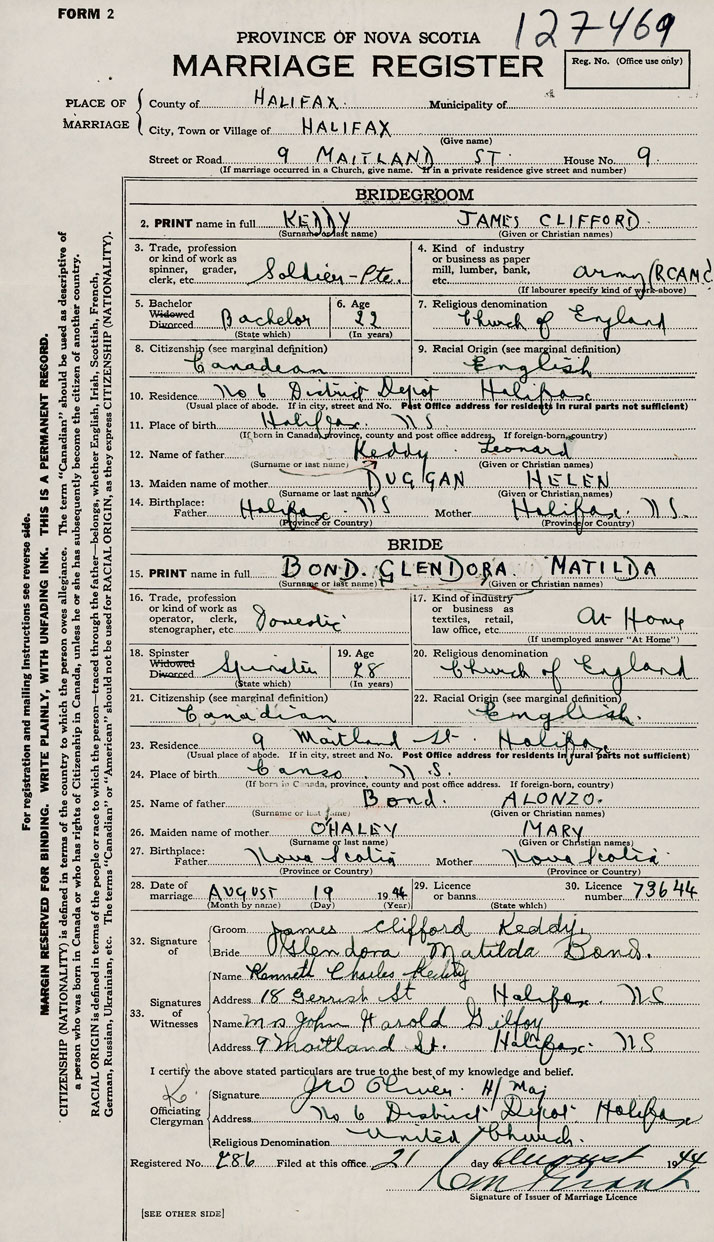 FORM 2
127469
PROVINCE OF NOVA SCOTIA
MARRIAGE REGISTER
Reg. No. (Office use only)
PLACE OF MARRIAGE
County of HALIFAX. Municipality of
City, Town or Village of HALIFAX
(Give name)
Street or Road 9 MAITLAND ST. House No. 9.
(If marriage occurred in a Church, give name. If in a private residence give street and number)
BRIDEGROOM
2. PRINT name in full KEDDY JAMES CLIFFORD.
(Surname or last name) (Given or Christian names)
3. Trade, profession or kind of work as spinner, grader, clerk, etc. Soldier-Pte.
4. Kind of industry or business as paper mill, lumber, bank, etc. Army (RCAMC
(If labourer specify kind of work above)
5. Bachelor Widowed Divorced Bachelor
(State which)
6. Age 22
(In years)
7. Religious denomination Church of England
8. Citizenship (see marginal definition) Canadian
9. Racial Origin (see marginal definition) English
10. Residence No 6 District Depot Halifax
(Usual place of abode. If in city, street and No. Post Office address for residents in rural parts not sufficient)
11. Place of birth Halifax. N S.
(If born in Canada, province, county and post office address. If foreign-born, country)
12. Name of father Keddy. Leonard
(Surname or last name) (Given or Christian names)
13. Maiden name of mother DUGGAN HELEN
(Surname or last name) (Given or Christian names)
14. Birthplace: Father Halifax. NS Mother Halifax. NS
(Province or Country) (Province or Country)
BRIDE
15. PRINT name in full BOND. GLENDORA. MATILDA
(Surname or last name) (Given or Christian names)
16. Trade, profession or kind of work as operator, clerk, stenographer, etc. Domestic
17. Kind of industry or business as textiles, retail, law office, etc. At Home
(If unemployed answer "At Home")
18. Spinster Widowed Divorced Spinster
(State which)
19. Age 28
(In years)
20. Religious denomination Church of England
21. Citizenship (see marginal definition) Canadian
22. Racial Origin (see marginal definition) English.
23. Residence 9 Maitland St. Halifax
(Usual place of abode. If in city, street and No. Post Office address for residents in rural parts not sufficient)
24. Place of birth Canso. N. S.
(If born in Canada, province, county and post office address. If foreign-born, country)
25. Name of father Bond. ALONZO.
(Surname or last name) (Given or Christian names)
26. Maiden name of mother O'HALEY MARY
(Surname or last name) (Given or Christian names)
27. Birthplace: Father Nova Scotia Mother Nova Scotia
(Province or Country) (Province or Country)
28. Date of marriage AUGUST 19 1944
(Month by name) (Day) (Year)
29. Licence or banns
(State which)
30. Licence number 73644
32. Signature of
Groom James Clifford Keddy.
Bride Glendora Matilda Bond.
33. Signatures of Witnesses
Name Kenneth Charles Keddy
Address 18 Gerrish St Halifax. NS
Name Mrs John Harold Gilfoy
Address 9 Maitland St. Halifax. NS
I certify the above stated particulars are true to the best of my knowledge and belief.
Officiating Clergyman
Signature Oliver. H/Maj
Address No 6 District Depot Halifax
Religious Denomination United Church.
Registered No. 286 Filed at this office 21 day of August 1944
Grant
Signature of Issuer of Marriage Licence
[SEE OTHER SIDE]
For registration and mailing instructions see reverse side.
MARGIN RESERVED FOR BINDING. WRITE PLAINLY, WITH UNFADING INK. THIS IS A PERMANENT RECORD.
CITIZENSHIP (NATIONALITY) is defined in terms of the country to which the person owes allegiance. The term "Canadian" should be used as descriptive of
a person who was born in Canada or who has rights of Citizenship in Canada, unless he or she has subsequently become the citizen of another country.
RACIAL ORIGIN is defined in terms of the people or race to which the person—traced through the father—belongs, whether English, Irish, Scottish, French,
German, Russian, Ukrainian, etc. The terms "Canadian" or "American" should not be used for RACIAL ORIGIN, as they express CITIZENSHIP (NATIONALITY).